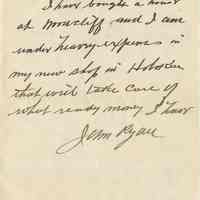 I have bought a home
at Moracliff and I am
under heavy expenses in
my new shop in Hoboken
that will take care of
what ready money I have
John Ryan